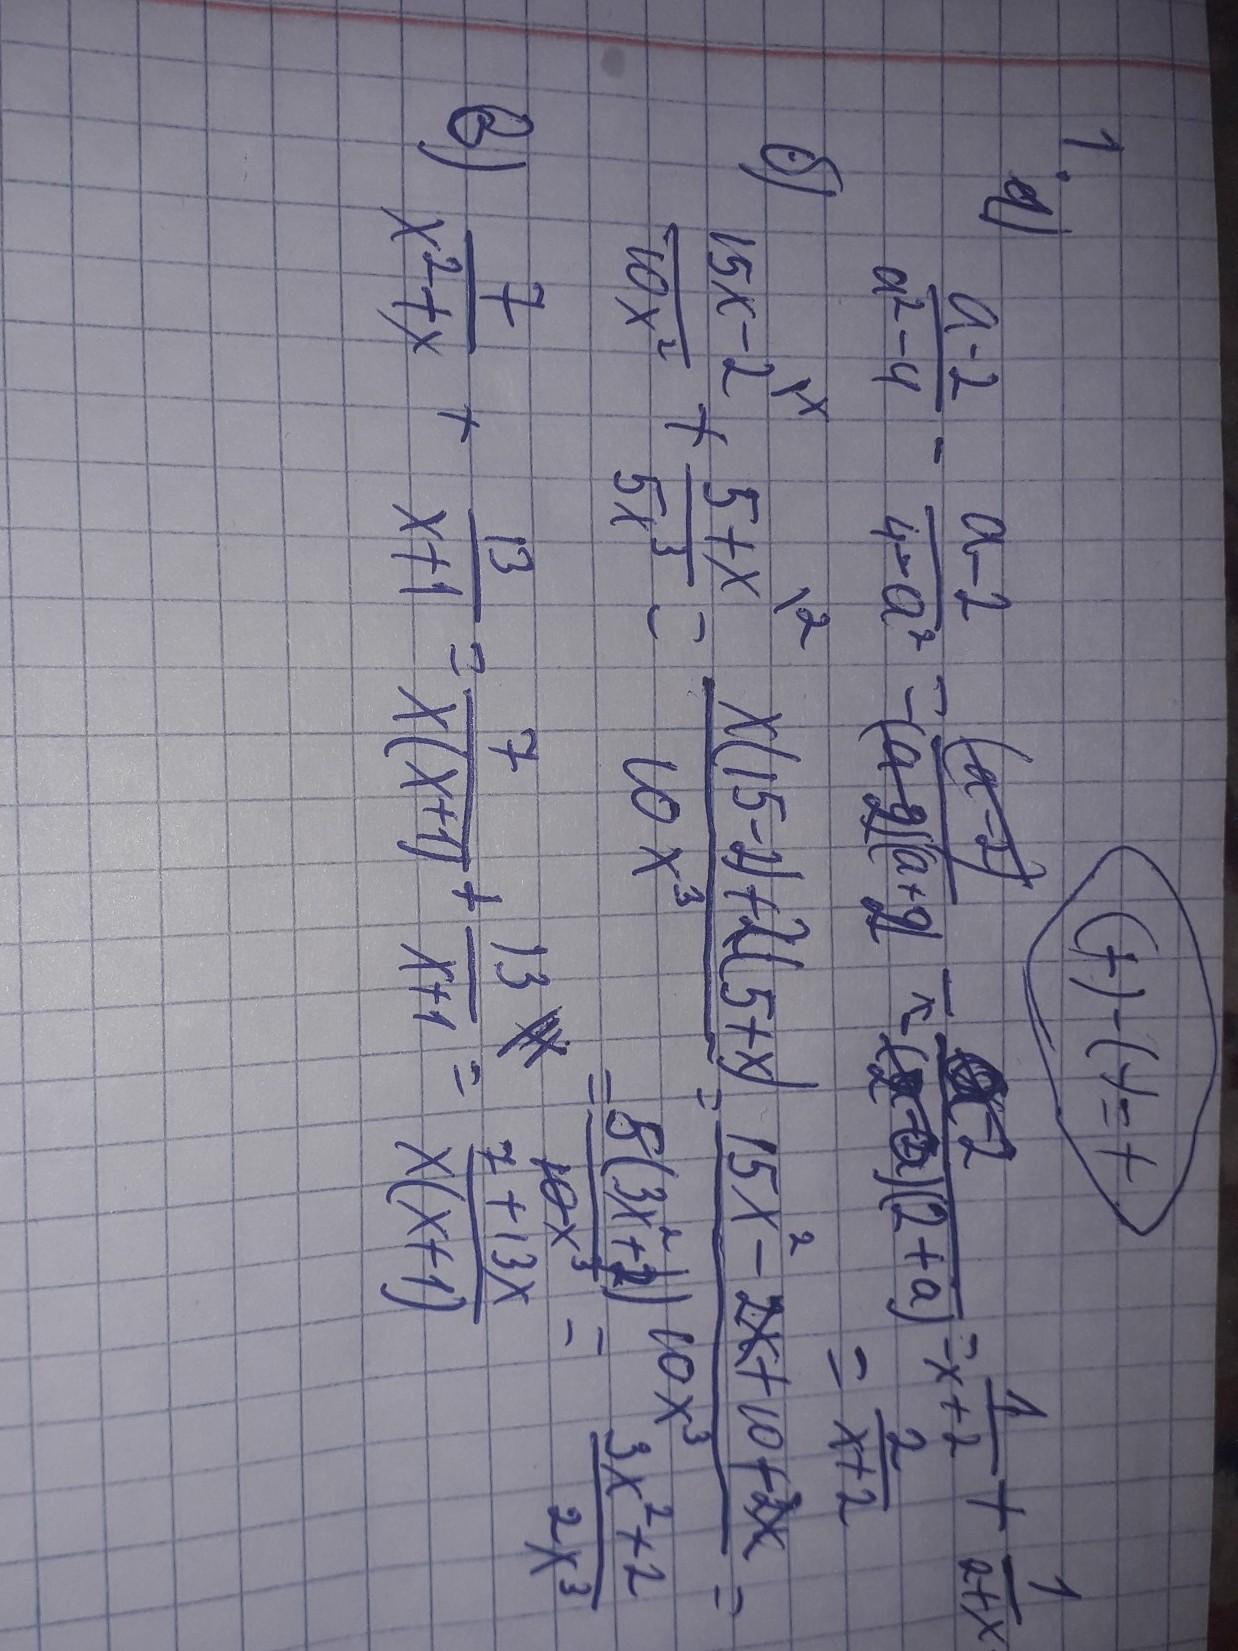 (+)-(-)=+
1. а) (a-2)/(a²-4) - (a-2)/(4-a²) = (a-2)/((a-2)(a+2)) - -2/((2+a) = 1/(x+2) + 1/(2+x)
= 2/(x+2)
б) (15x-2 \x)/(10x²) + (5+x \2)/(5x³) = (x(15-2)+2(5+x))/(10x³) = (15x²-2x+10+2x)/(10x³) =
= (5(3x²+2))/(10x³) = (3x²+2)/(2x³)
в) 7/(x²+x) + 13/(x+1) = 7/(x(x+1)) + 13/(x+1) = (7+13x)/(x(x+1))